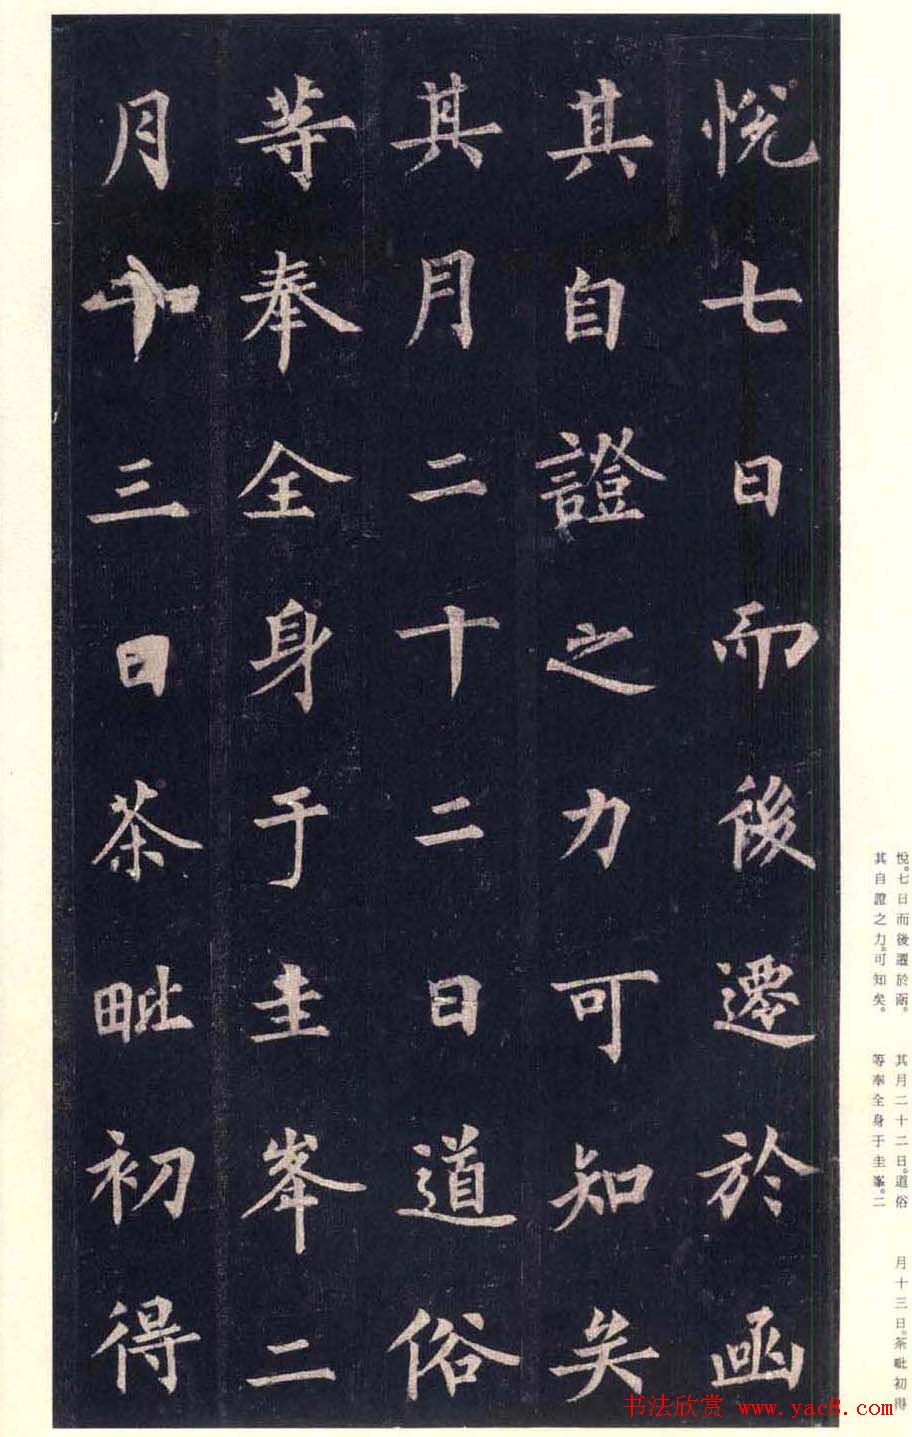 悦七日而後遷於函
其自證之力可知矣
其月二十二日道俗
等奉全身于圭峯二
月十三日茶毗初得
悅。七日而後遷於函。
其自證之力。可知矣。
其月二十二日。道俗
等奉全身于圭峯。二
月十三日。茶毗初得
书法欣赏 www.yac8.com